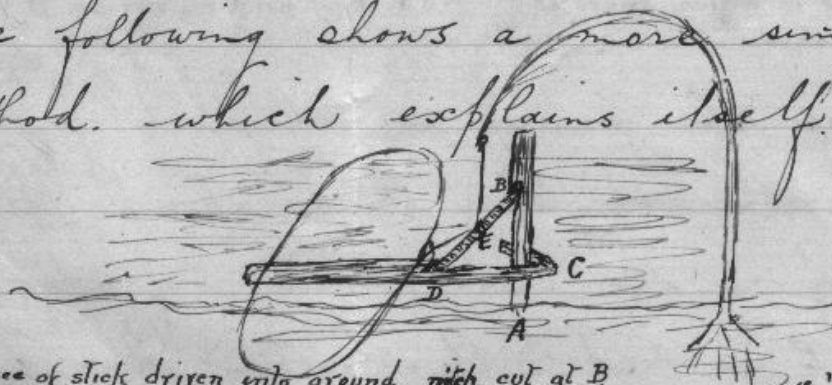 following shows a more
which explains itself.
B
E
C
D
A
of stick driven into ground nitch cut at B